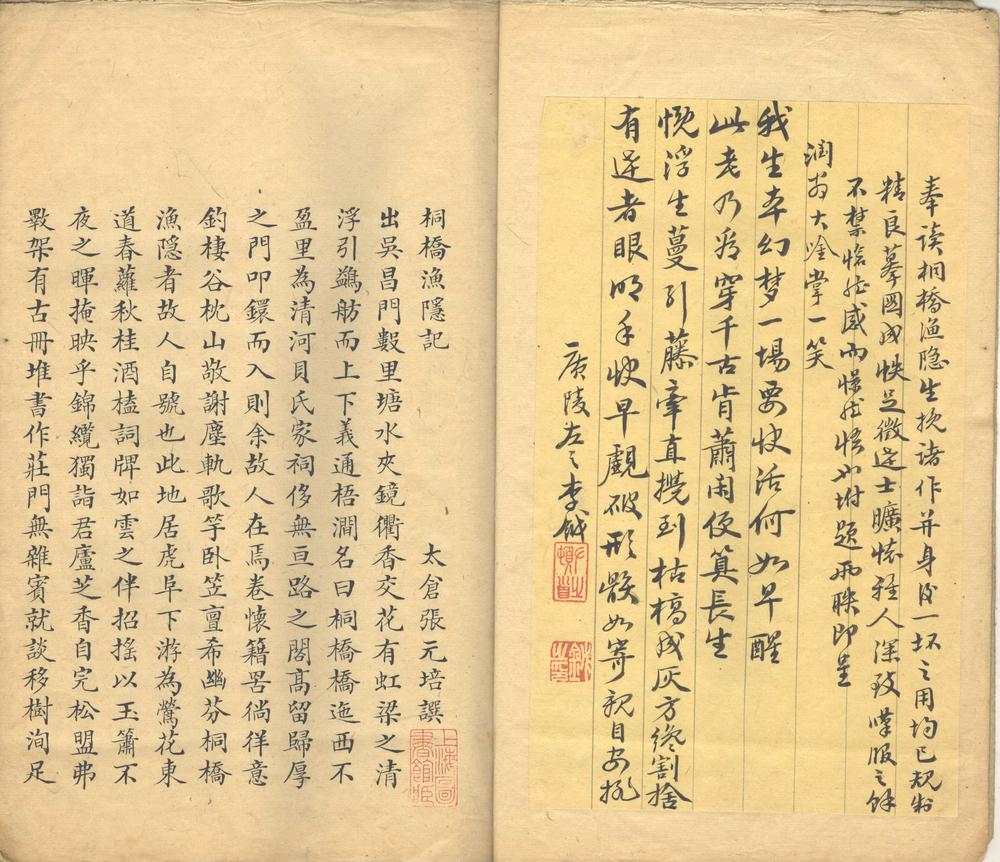 奉读桐橋漁隐生圹诸作并身後一坏之用均已规制
精良摹圖成帙足徵达士曠懷雅人深致嘆服之餘
不禁慨然感而憬然悟如坿題两联即呈
润翁大唫掌一笑
我生本幻梦一場要快活何如早醒
此老乃看穿千古肯蕭闲便算長生
慨浮生蔓引藤牽直攪到枯槁成灰方纔割捨
有达者眼明手快早觑破形骸如寄親自安排
廣陵左之李鉞
桐橋漁隱記
太倉張元培譔
出吳昌門數里塘水夾鏡衢香交花有虹梁之清
浮引鷁舫而上下義通梧澗名曰桐橋橋迤西不
盈里為清河貝氏家祠侈無亘路之閣高留歸厚
之門叩鐶而入則余故人在焉卷懷籍罟徜徉意
釣棲谷枕山敬謝塵軌歌竽卧笠亶希幽芬桐橋
漁隱者故人自號也此地居虎阜下游為鶯花東
道春蘿秋桂酒榼詞牌如雲之伴招搖以玉簫不
夜之暉掩映乎錦纜獨詣君廬芝香自完松盟弗
斁架有古冊堆書作莊門無雜賓就談移樹洵足
上海圖書館藏